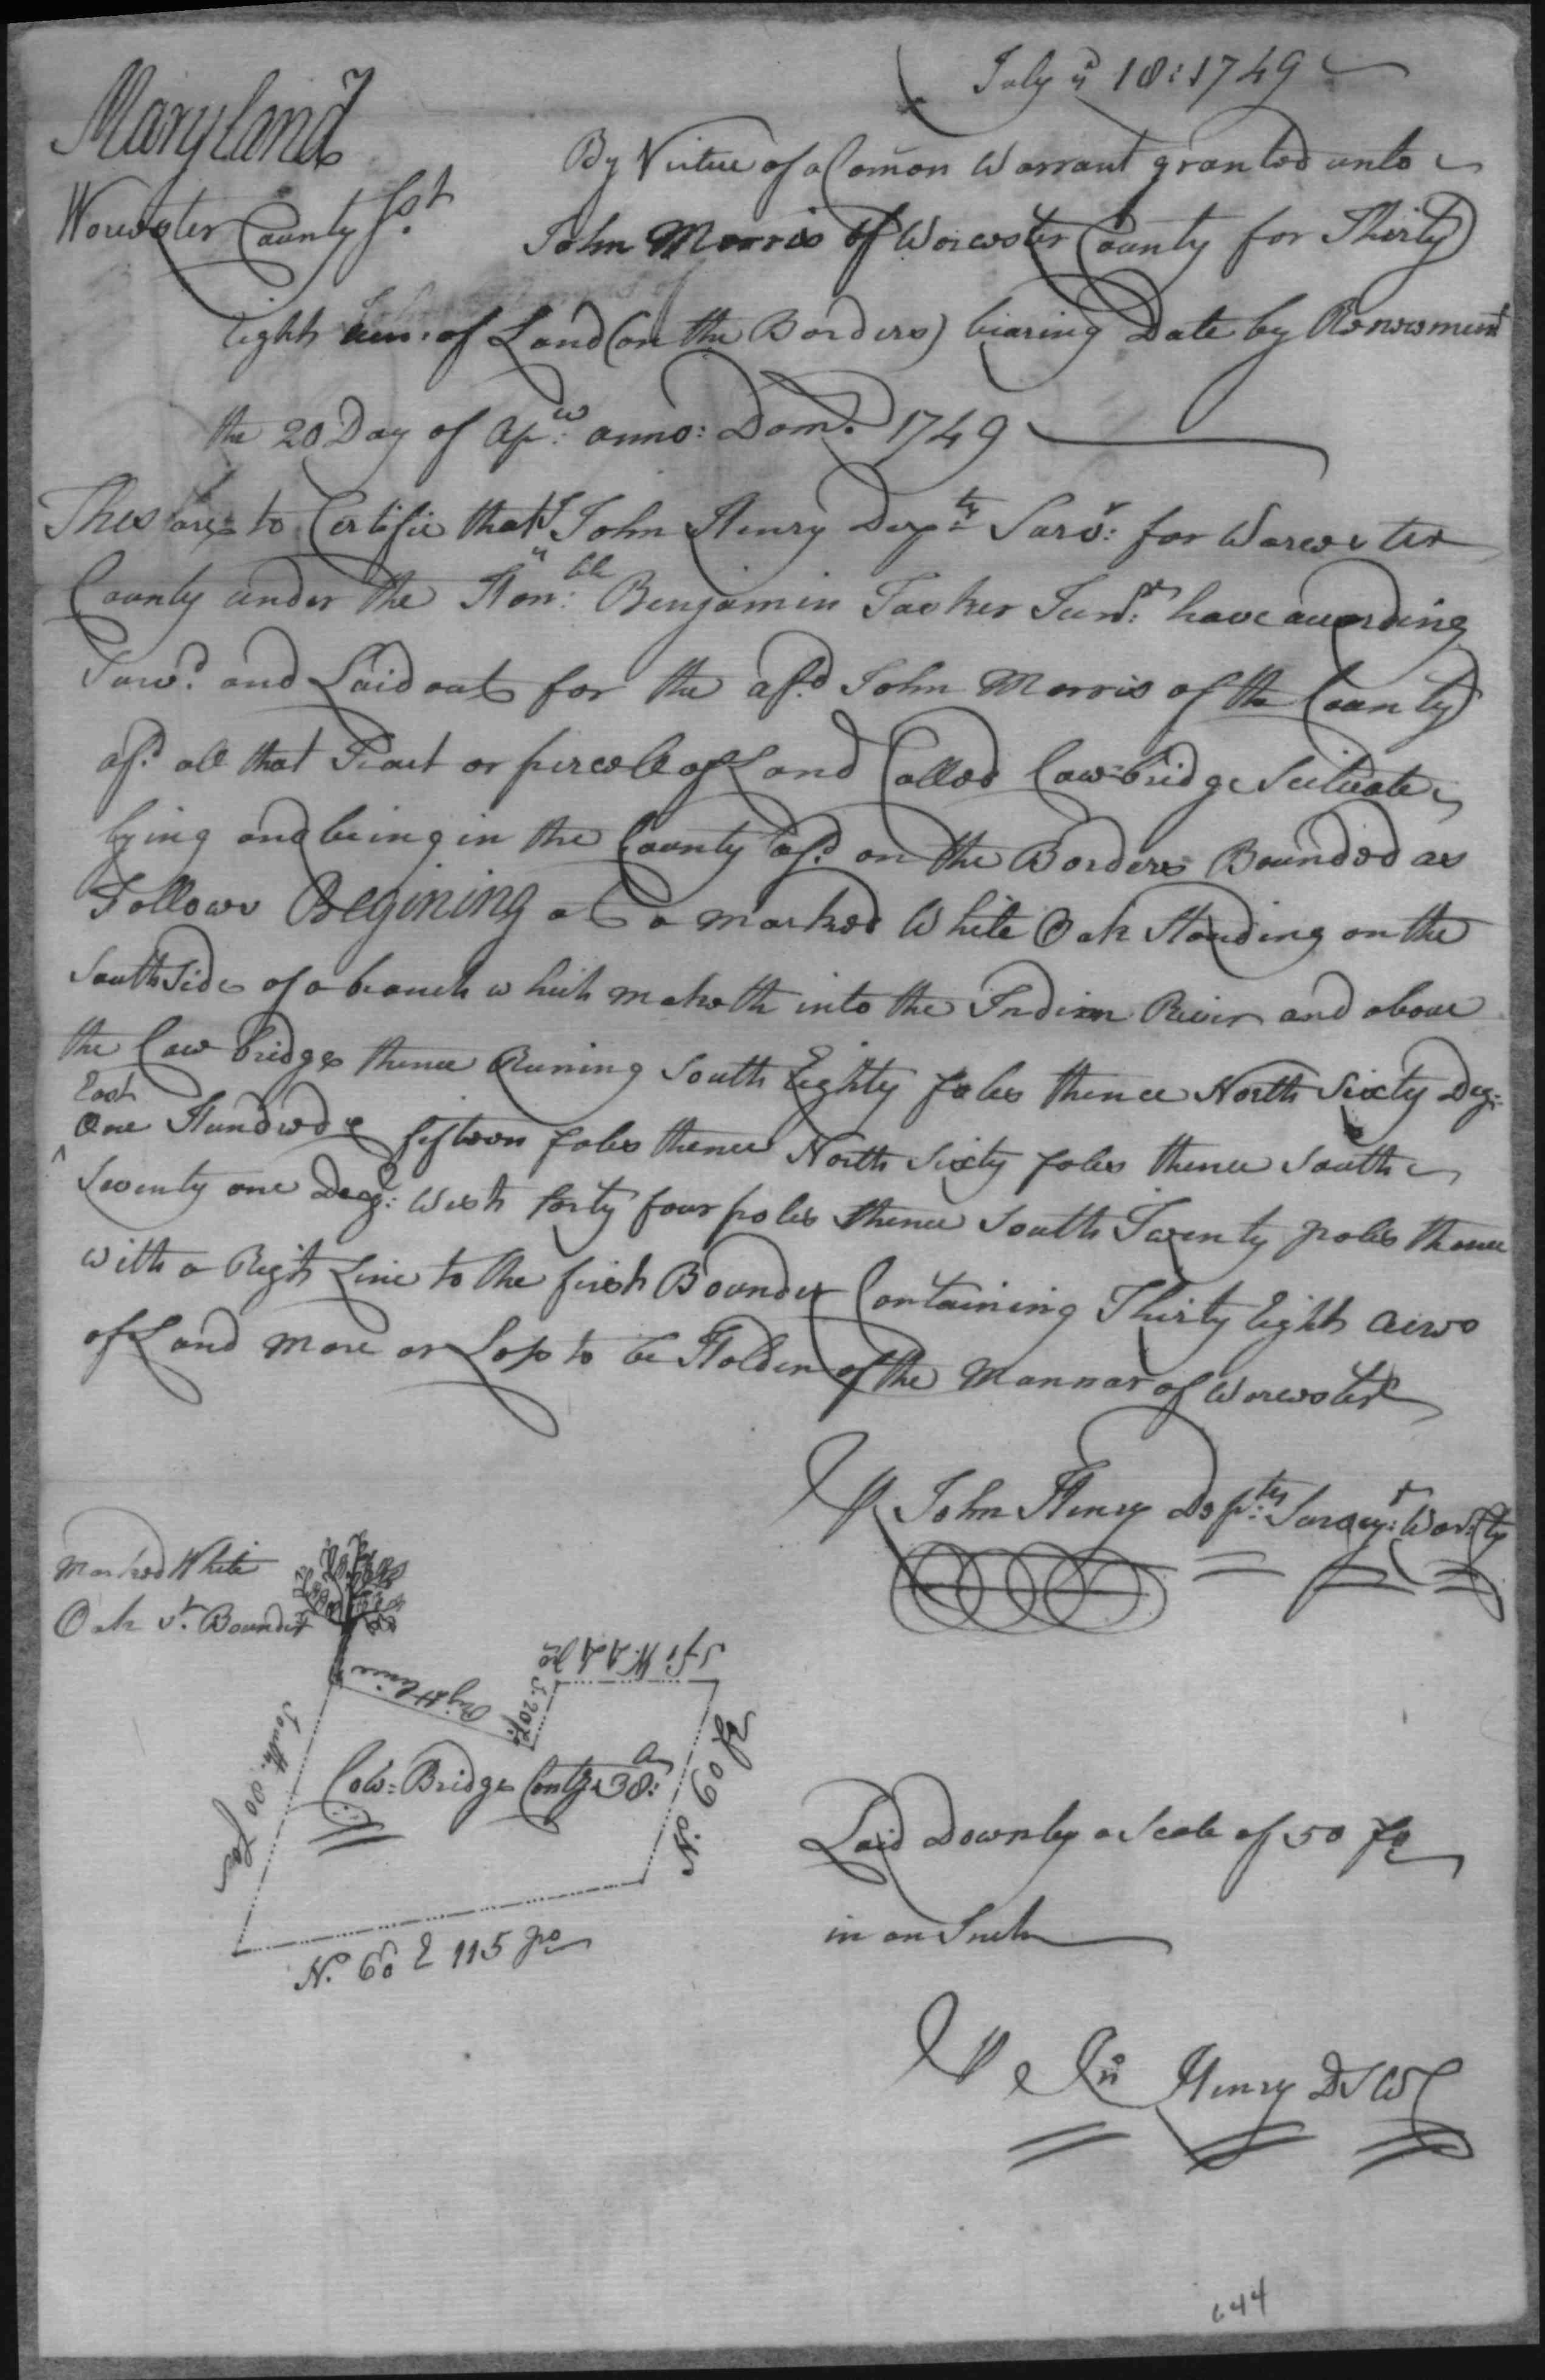 July ye 18: 1749
Maryland
Worcester County Sst.
By Virtue of a Comon Warrant granted unto
John Morris of Worcester County for Thirty
Eight acrs: of Land (on the Borders) bearing Date by Renewment
the 20 Day of Apr: anno: Dom. 1749
Thes are to Certifie that I John Henry Depty: Survr: for Worcester
County under the Honble: Benjamin Tasker Junr: have according
Survd. and Laid out for the afsd. John Morris of the County
afsd. all that Tract or percell of Land Called Cow=bridge Scituate
lying and being in the County afsd. on the Borders Bounded as
Follows Begining at a marked White Oak Standing on the
South Side of a branch which maketh into the Indian River and above
the Cow bridge thence Runing South Eighty poles thence North Sixty Deg:
East
One Hundred & fifteen poles thence North Sixty poles thence South
Seventy one Degs: West forty four poles thence South Twenty poles thence
with a Right Line to the first Bounder Containing Thirty Eight acres
of Land more or Less to be Holden of the Mannar of Worcester
Pr John Henry Depty: Survey:r Wor: Cty
Marked White
Oak 1st. Bounder
S 71 W. 44 po
S. 20 po
Right Line
South. 80 po
Cow=Bridge Contg. 38: a
N. 60 po
N. 60 E 115 po
Laid Down by a Scale of 50 po
in an Inch
Pr Jno Henry DSWC
644